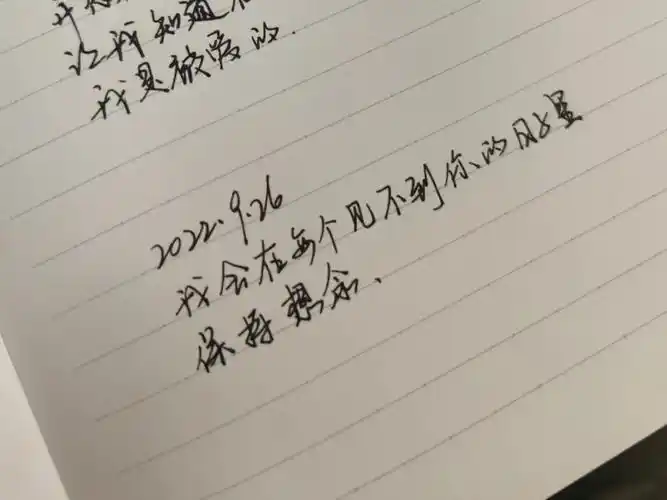 让我知道
我是被爱的.
2022.9.26
我会在每个见不到你的日子里
保持想念、